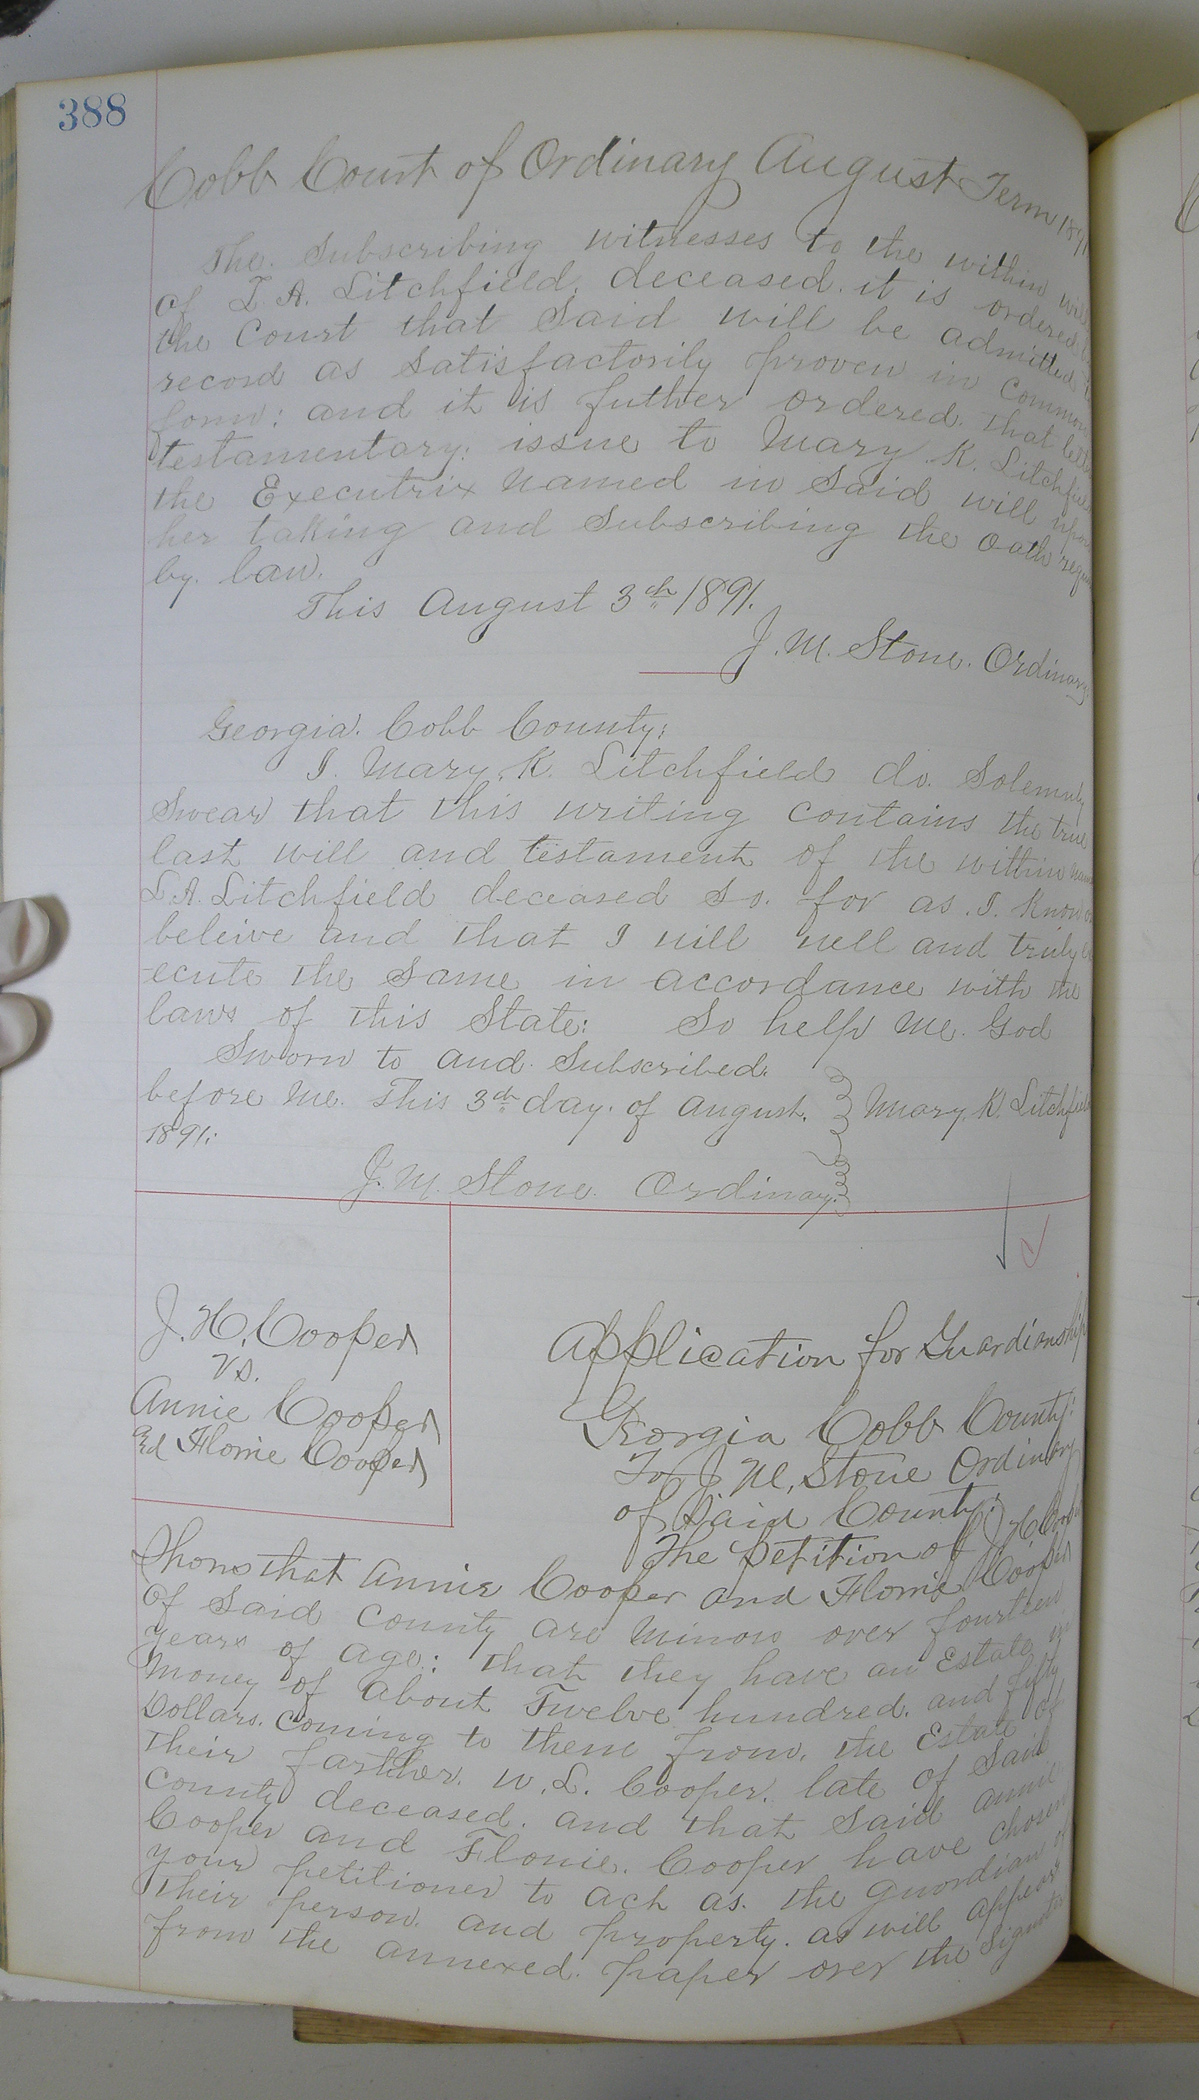 388
Cobb Court of Ordinary August Term 1891
The Subscribing witnesses to the within will
of L. A. Litchfield, deceased. it is ordered
the Court that Said will be admitted
record as Satisfactorily proven in Common
form: and it is futher ordered. that
testamentary. issue to Mary K. Litchfield
the Executrix Named in Said will upon
her taking and Subscribing the Oath
by. law.
This August 3th 1891.
J. M. Stone. Ordinary
Georgia. Cobb County:
I. Mary. K. Litchfield do. Solemnly
Swear that this writing contains the true
last will and testament of the within
L. A. Litchfield deceased So. far as. I. Know
beleive and that I will well and truly
ecute the Same in accordance with the
laws of this State: So help Me. God
Sworn to and. Subscribed.
before Me. This 3th day. of August. Mary. K. Litchfield
1891.
J. M. Stone. Ordinary.
J. H. Cooper
vs.
Annie Cooper
and Flonie Cooper
Application for Guardianship
Georgia Cobb County:
To J. M. Stone Ordinary
of Said County:
The Petition of J. H.
Shows that Annie Cooper and Flonie Cooper
of Said County are Minors over fourteen
years of age: that they have an Estate in
Money of about Twelve hundred. and fifty
Dollars. coming to them from. the Estate of
their farther. W. L. Cooper. late of Said
County deceased. and that Said Annie
Cooper and Flonie. Cooper have chosen
your petitioner to act as. the guardian of
their person. and property. as will appear
from the annexed. paper over the